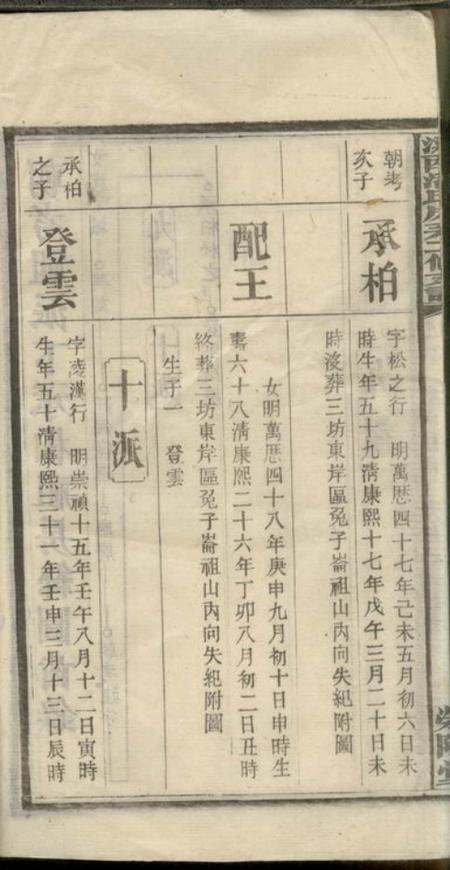 朝考
次子
承柏
字松之行　明萬厯四十七年己未五月初六日未
時生年五十九清康熙十七年戊午三月二十日未
時沒葬三坊東岸區兔子崙祖山丙向失紀附圖
配王
女明萬厯四十八年庚申九月初十日申時生
壽六十八清康熙二十六年丁卯八月初二日丑時
終葬三坊東岸區兔子崙祖山丙向失紀附圖
生子一　登雲
十派
承柏
之子
登雲
字凌漢行　明崇禎十五年壬午八月十二日寅時
生年五十清康熙三十一年壬申三月十三日辰時